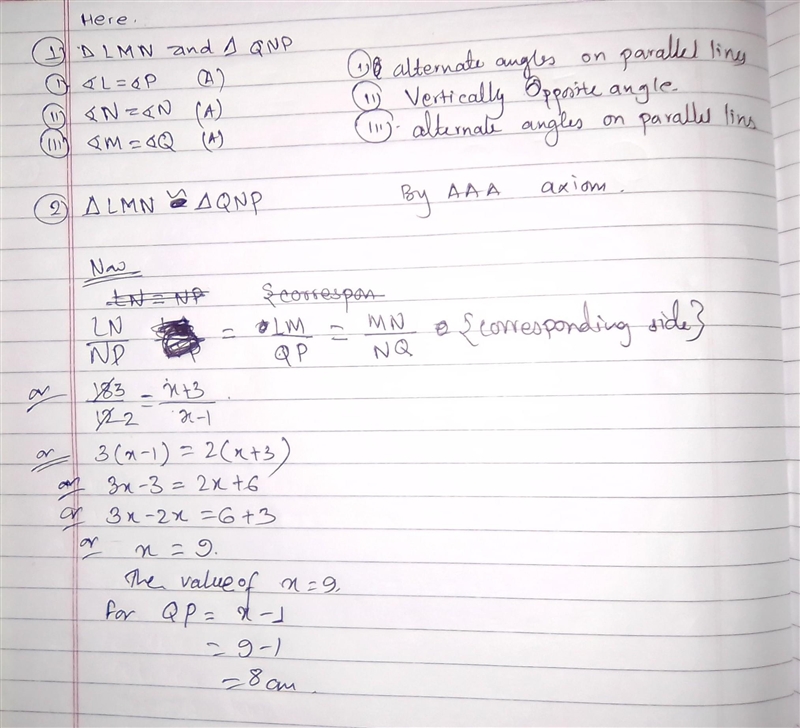 Here.
① Δ LMN and Δ QNP
ⓘ ∡L = ∡P (A) ⓘ alternate angles on parallel lines
ⓘⓘ ∡N = ∡N (A) (ii) Vertically Opposite angle.
(iii) ∡M = ∡Q (A) (iii). alternate angles on parallel lins
② Δ LMN ~ Δ QNP By AAA axiom.
Now
LN = NP {correspon
LN/NP = LM/QP = MN/NQ {corresponding side}
or 18 3/12 2 = x+3/x-1
or 3(x-1) = 2(x+3)
or 3x-3 = 2x+6
or 3x-2x = 6+3
or x = 9.
The value of x = 9.
for QP = x-1
= 9-1
= 8cm.